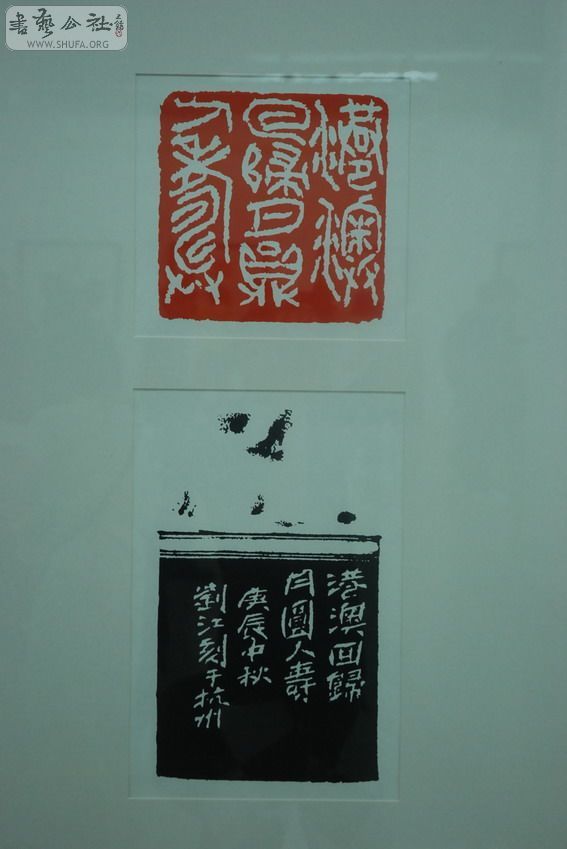 書藝公社
WWW.SHUFA.ORG
港澳
回歸月圓
人壽
港澳回歸
月圓人壽
庚辰中秋
劉江刻于杭州